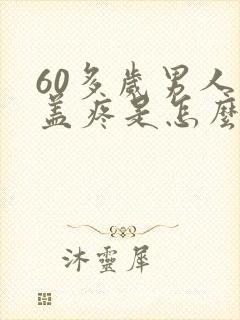 60多歲男人
盖疼是怎麽
沐靈犀